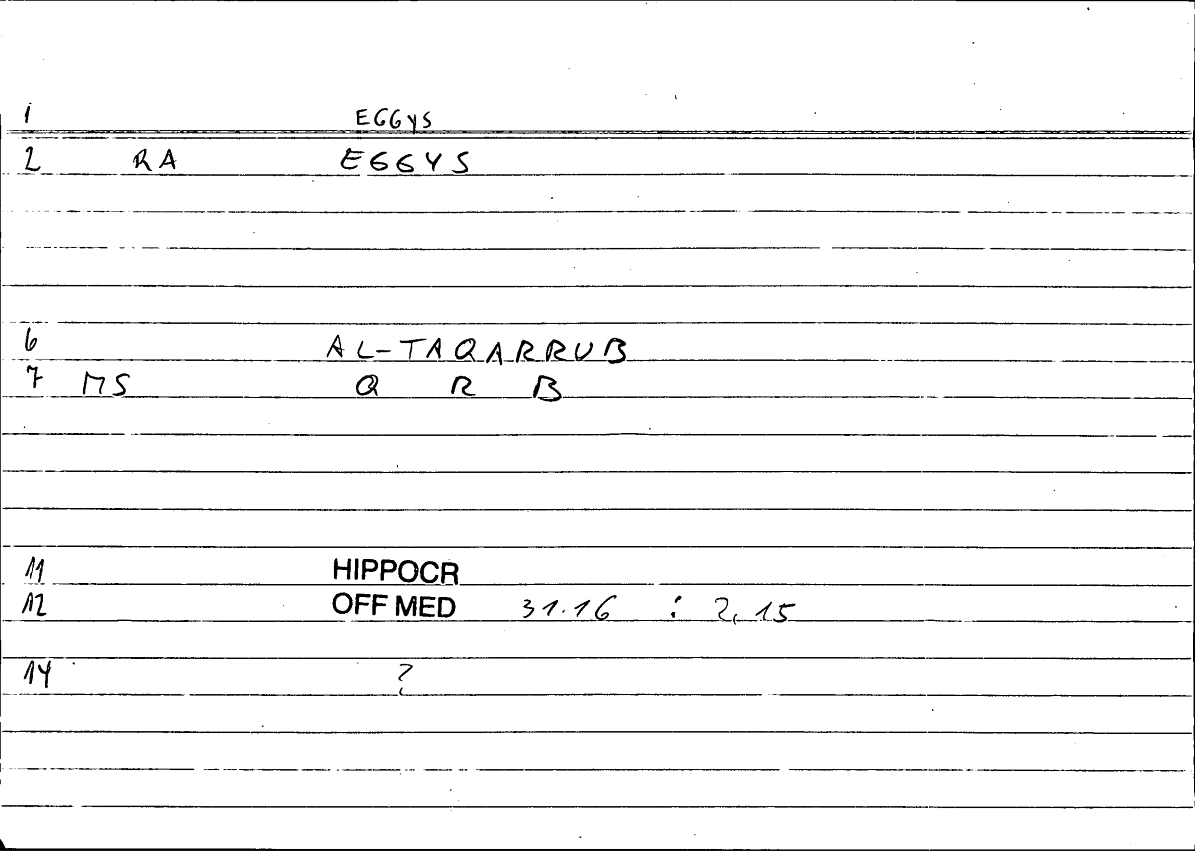 1 EGGYS
2 RA EGGYS
6 AL-TAQARRUB
7 MS Q R B
11 HIPPOCR
12 OFF MED 31.16 : 2,15
14 ?